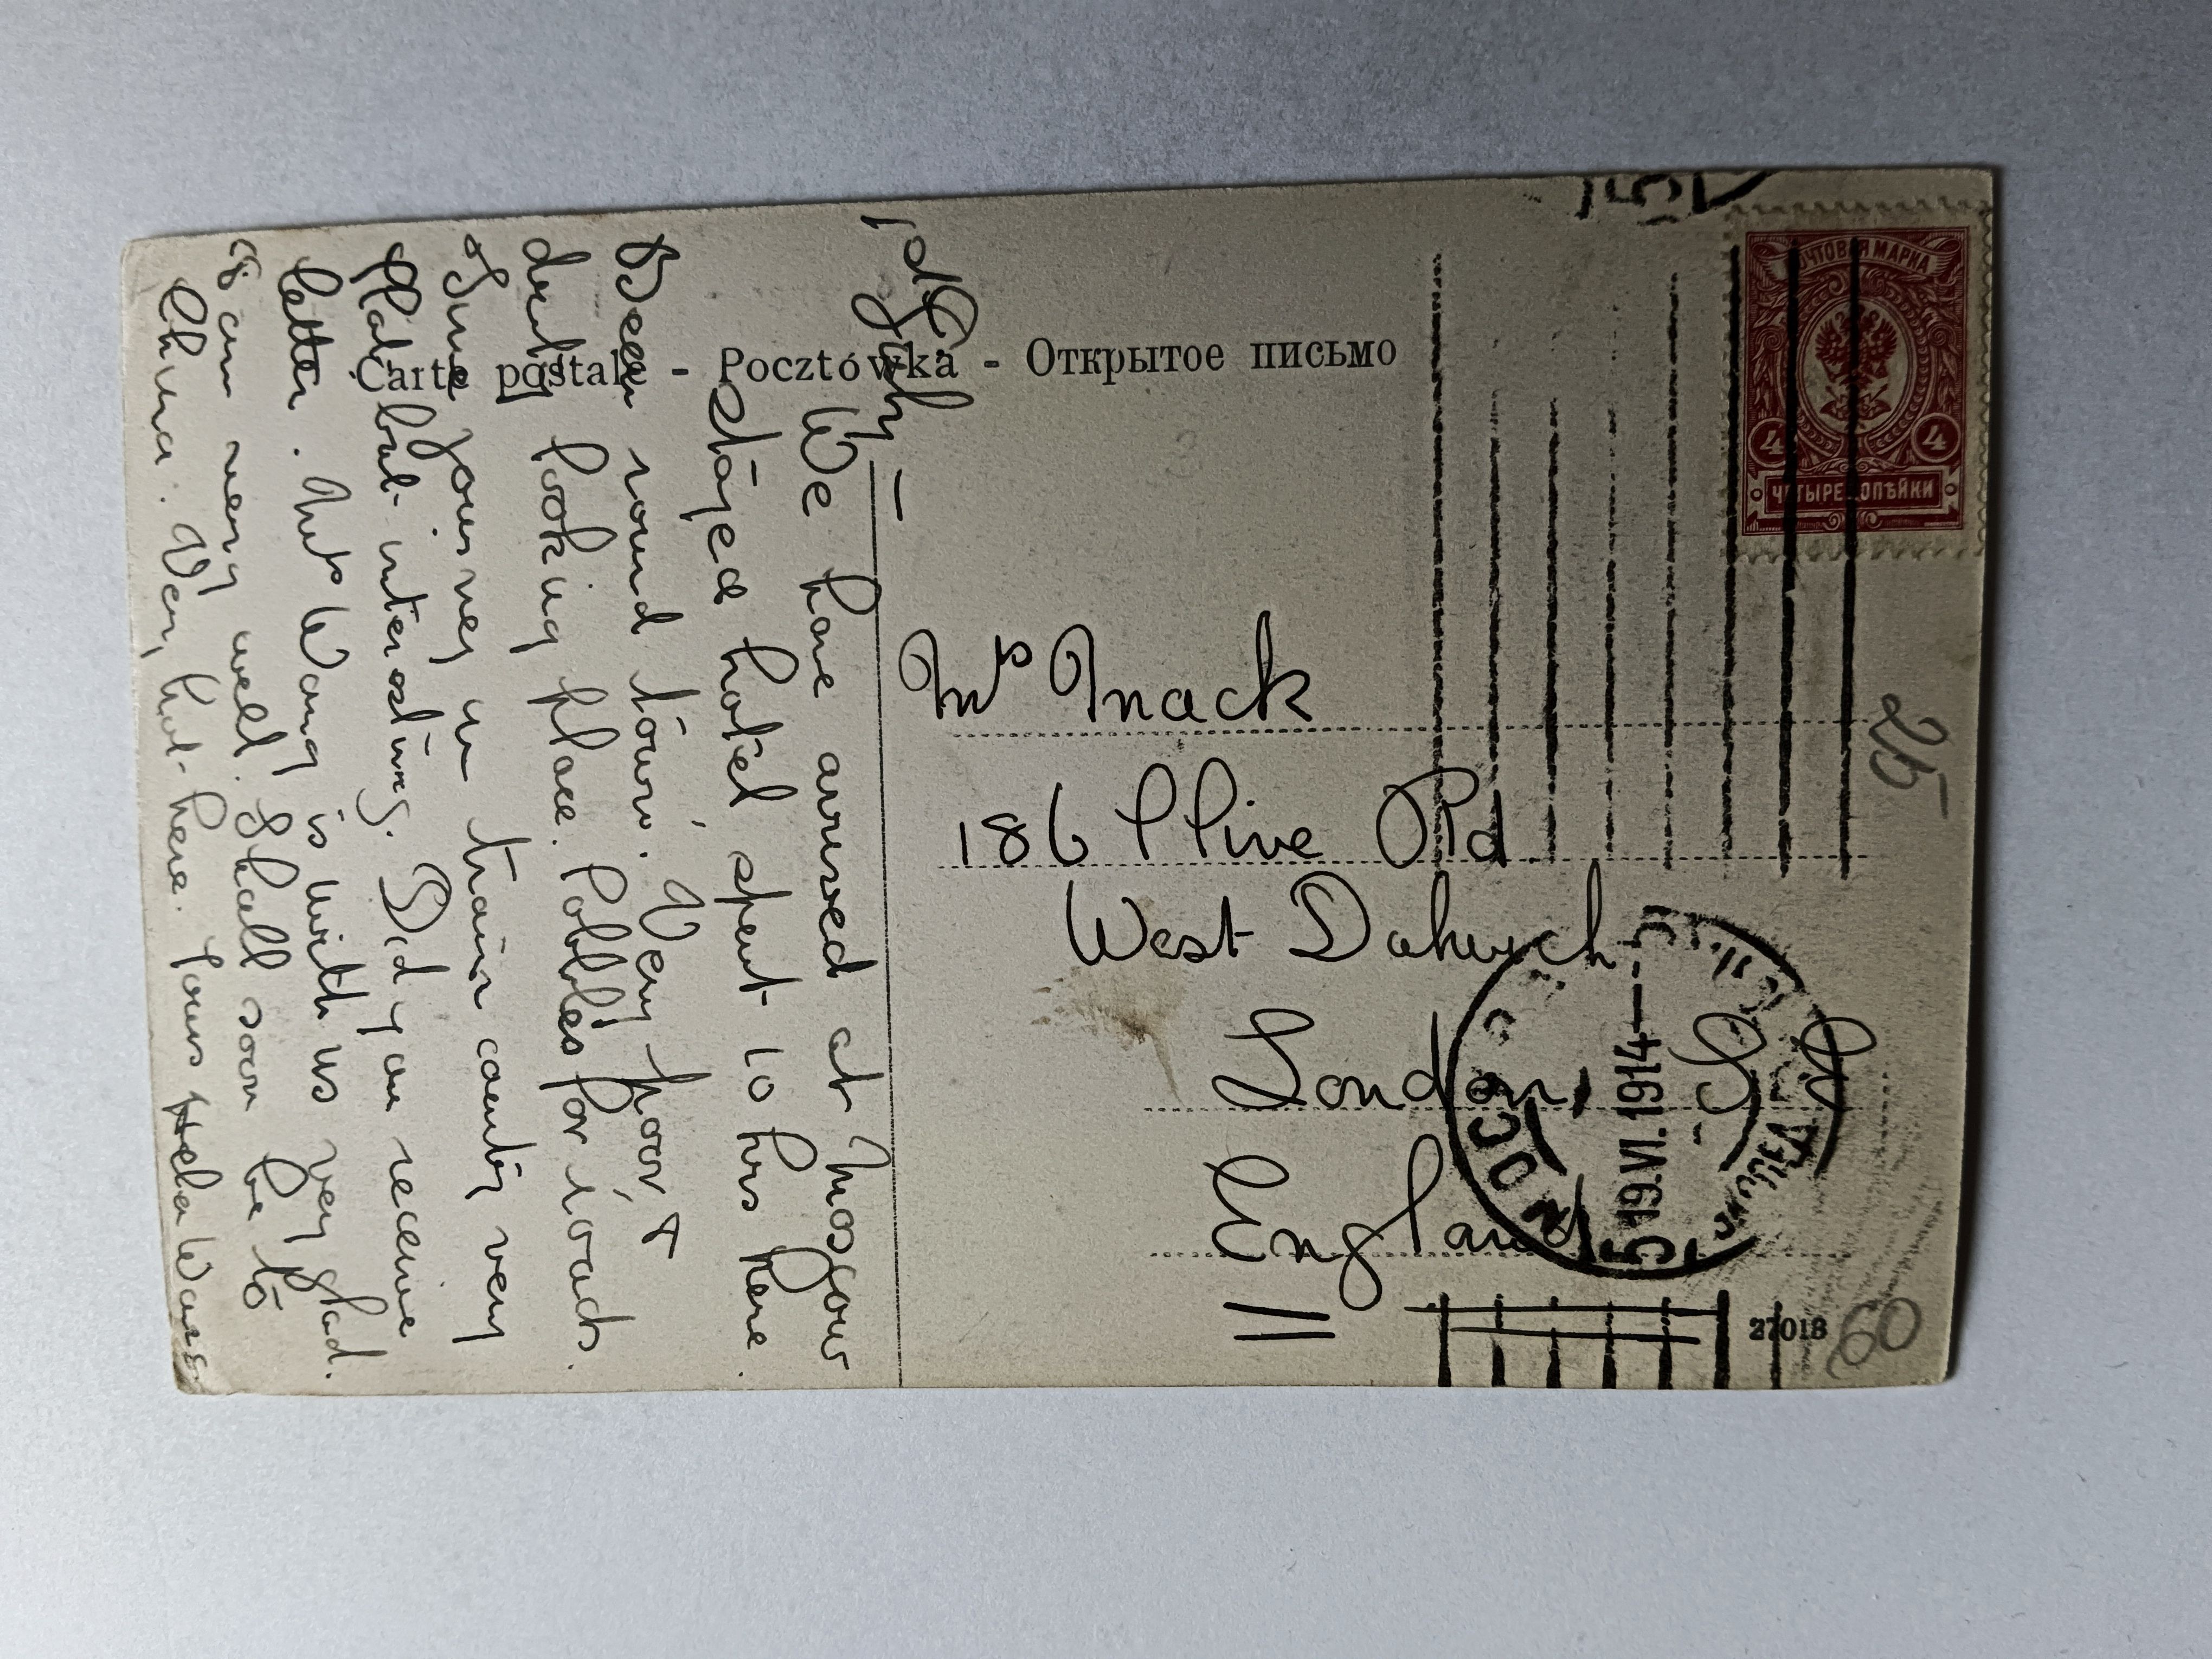 Carte postale - Pocztówka - Открытое письмо
ПОЧТОВАЯ МАРКА
4 4
ЧЕТЫРЕ КОПѢЙКИ
We have arrived at Moscow
stayed hotel spent 10 hrs here.
Been round town. Very poor, &
dirty looking place. Pobbles for roads.
Fine journey in train country very
flat but interesting. Did you receive
letter. Mrs Wang is with us very glad.
& am very well. Shall soon be to
China. Very hot here. Yours
Mrs Mack
186 Clive Rd
West Dulwich
London, S.E.
England
19.VI.1914
25
27018
60